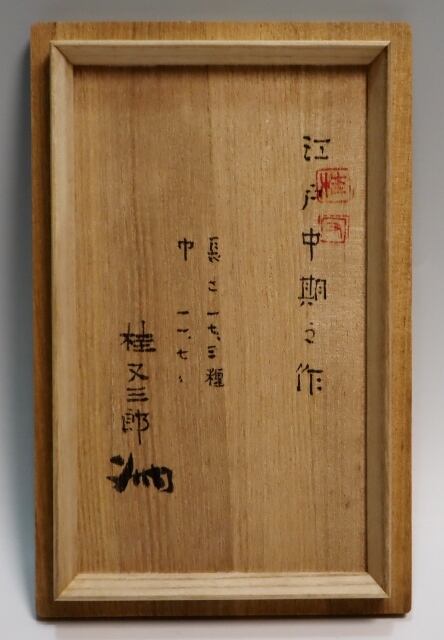 江戸中期之作
長さ 一七、三糎
巾 一一、七〻
桂又三郎